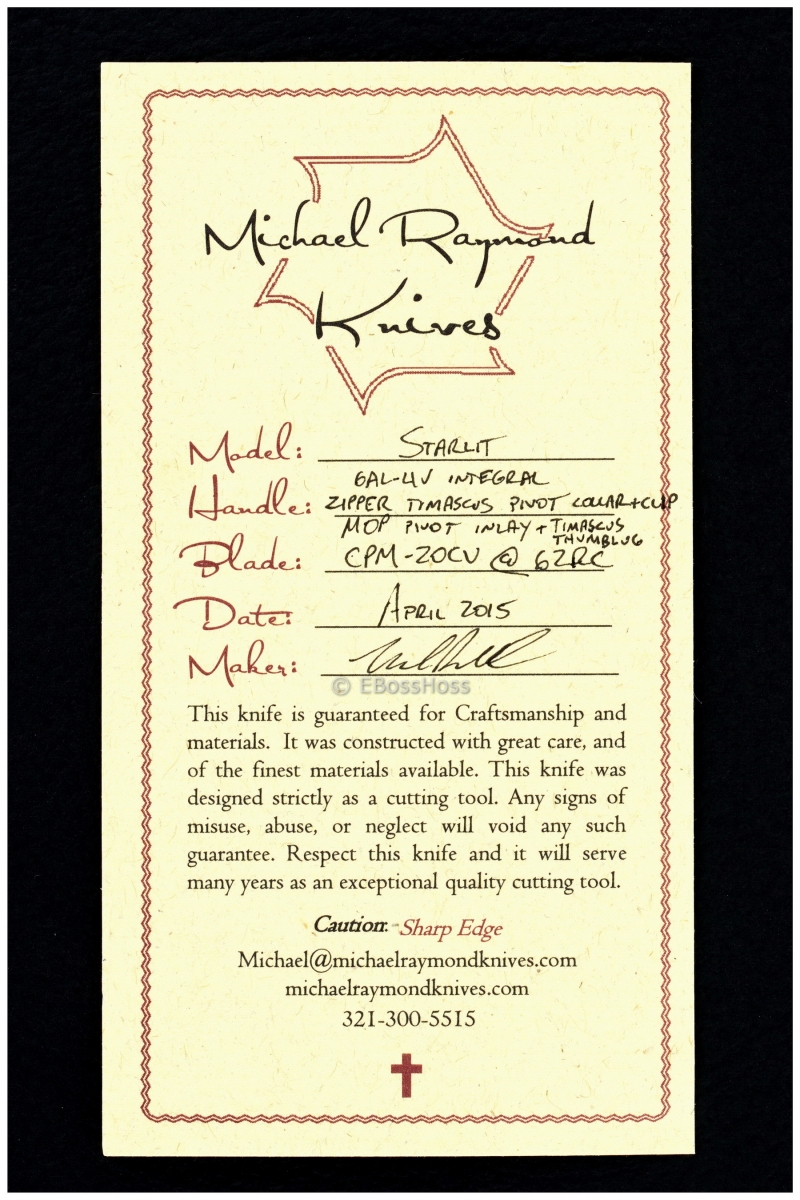 Michael Raymond
Knives
Model: STARLIT
6AL-4V INTEGRAL
Handle: ZIPPER TIMASCUS PIVOT COLLAR + CLIP
MOP PIVOT INLAY + TIMASCUS
THUMBLUG
Blade: CPM-20CV @ 62RC
Date: APRIL 2015
Maker:
© EBossHoss
This knife is guaranteed for Craftsmanship and
materials. It was constructed with great care, and
of the finest materials available. This knife was
designed strictly as a cutting tool. Any signs of
misuse, abuse, or neglect will void any such
guarantee. Respect this knife and it will serve
many years as an exceptional quality cutting tool.
Caution: Sharp Edge
Michael@michaelraymondknives.com
michaelraymondknives.com
321-300-5515